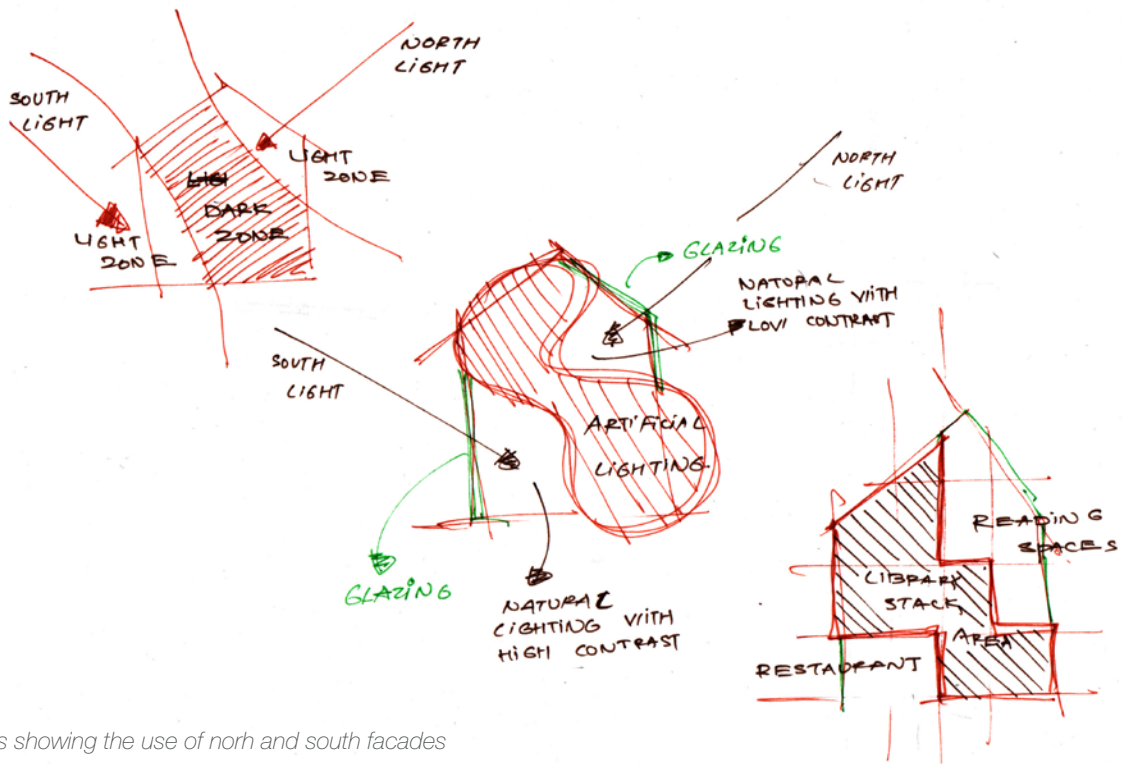 NORTH
LIGHT
SOUTH
LIGHT
LIGHT
ZONE
LIGHT
ZONE
DARK
ZONE
NORTH
LIGHT
GLAZING
NATURAL
LIGHTING WITH
LOW CONTRAST
SOUTH
LIGHT
ARTIFICIAL
LIGHTING.
GLAZING
NATURAL
LIGHTING WITH
HIGH CONTRAST
READING
SPACES
LIBRARY
STACK
AREA
RESTAURANT
s showing the use of norh and south facades